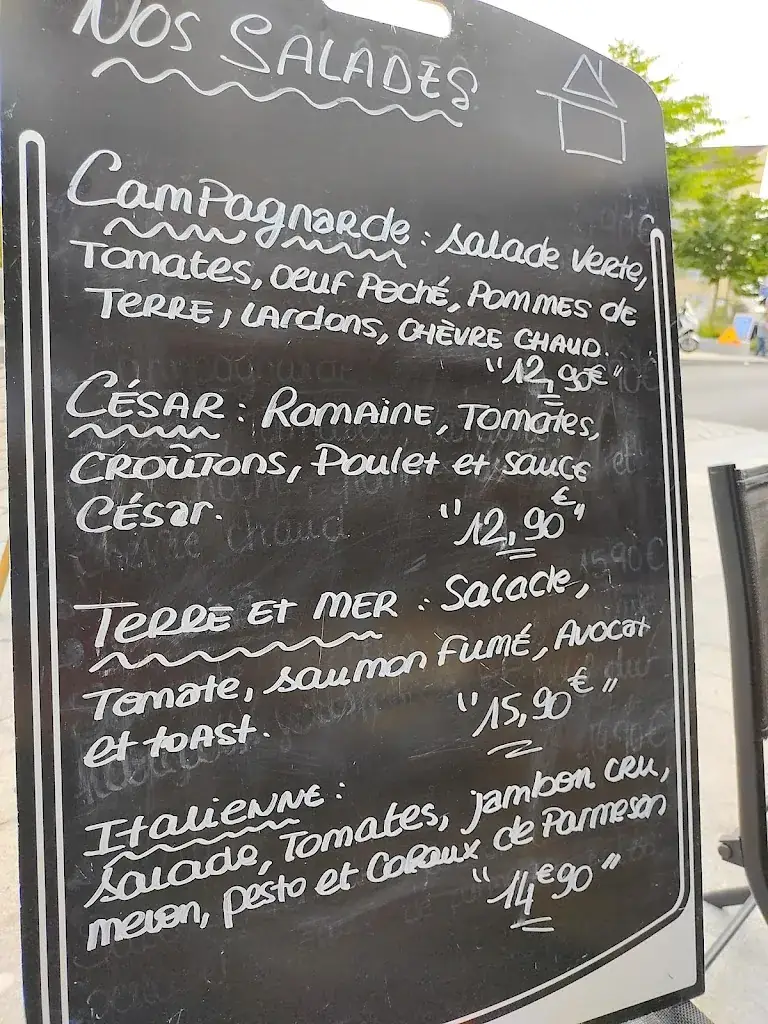 Nos SALADES
CAMPAgNARDE : SALADE VERTE,
TOMATES, OEUF POCHÉ, POMMES DE
TERRE, LARDONS, CHÈVRE CHAUD.
"12,90€"
CÉSAR : ROMAINE, TOMATES,
CROÛTONS, POULET et SAUCE
CÉSAR.
"12,90€"
TERRE ET MER : SALADE,
TOMATE, SAUMON FUMÉ, AVOCAT
et tOAST.
"15,90€"
ITALIENNE :
SALADE, TOMATES, JAMBON CRU,
MELON, PESTO et COPAUX de PARMESAN
"14€90"